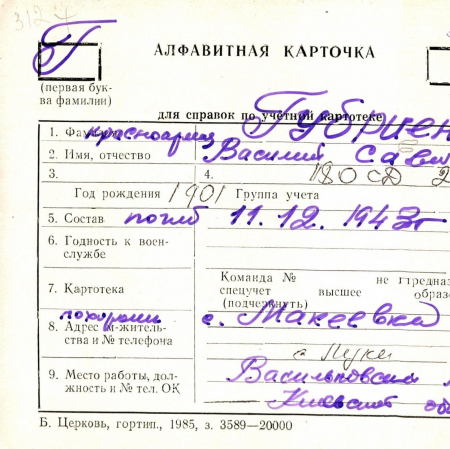 3127
Г
АЛФАВИТНАЯ КАРТОЧКА
(первая бук-
ва фамилии)
для справок по учетной картотеке
1. Фамилия красноармеец Губриен
2. Имя, отчество Василий Сав
3. 4. 180 СД 2
Год рождения 1901 Группа учета
5. Состав погиб 11.12.1943г
6. Годность к воен-
службе
Команда № не предназ
7. Картотека спецучет высшее образо
(подчеркнуть)
похоронен с. Макеевка
8. Адрес м-житель-
ства и № телефона
с Луки
9. Место работы, дол-
жность и № тел. ОК Васильковский
Киевской об
Б. Церковь, гортип., 1985, з. 3589—20000